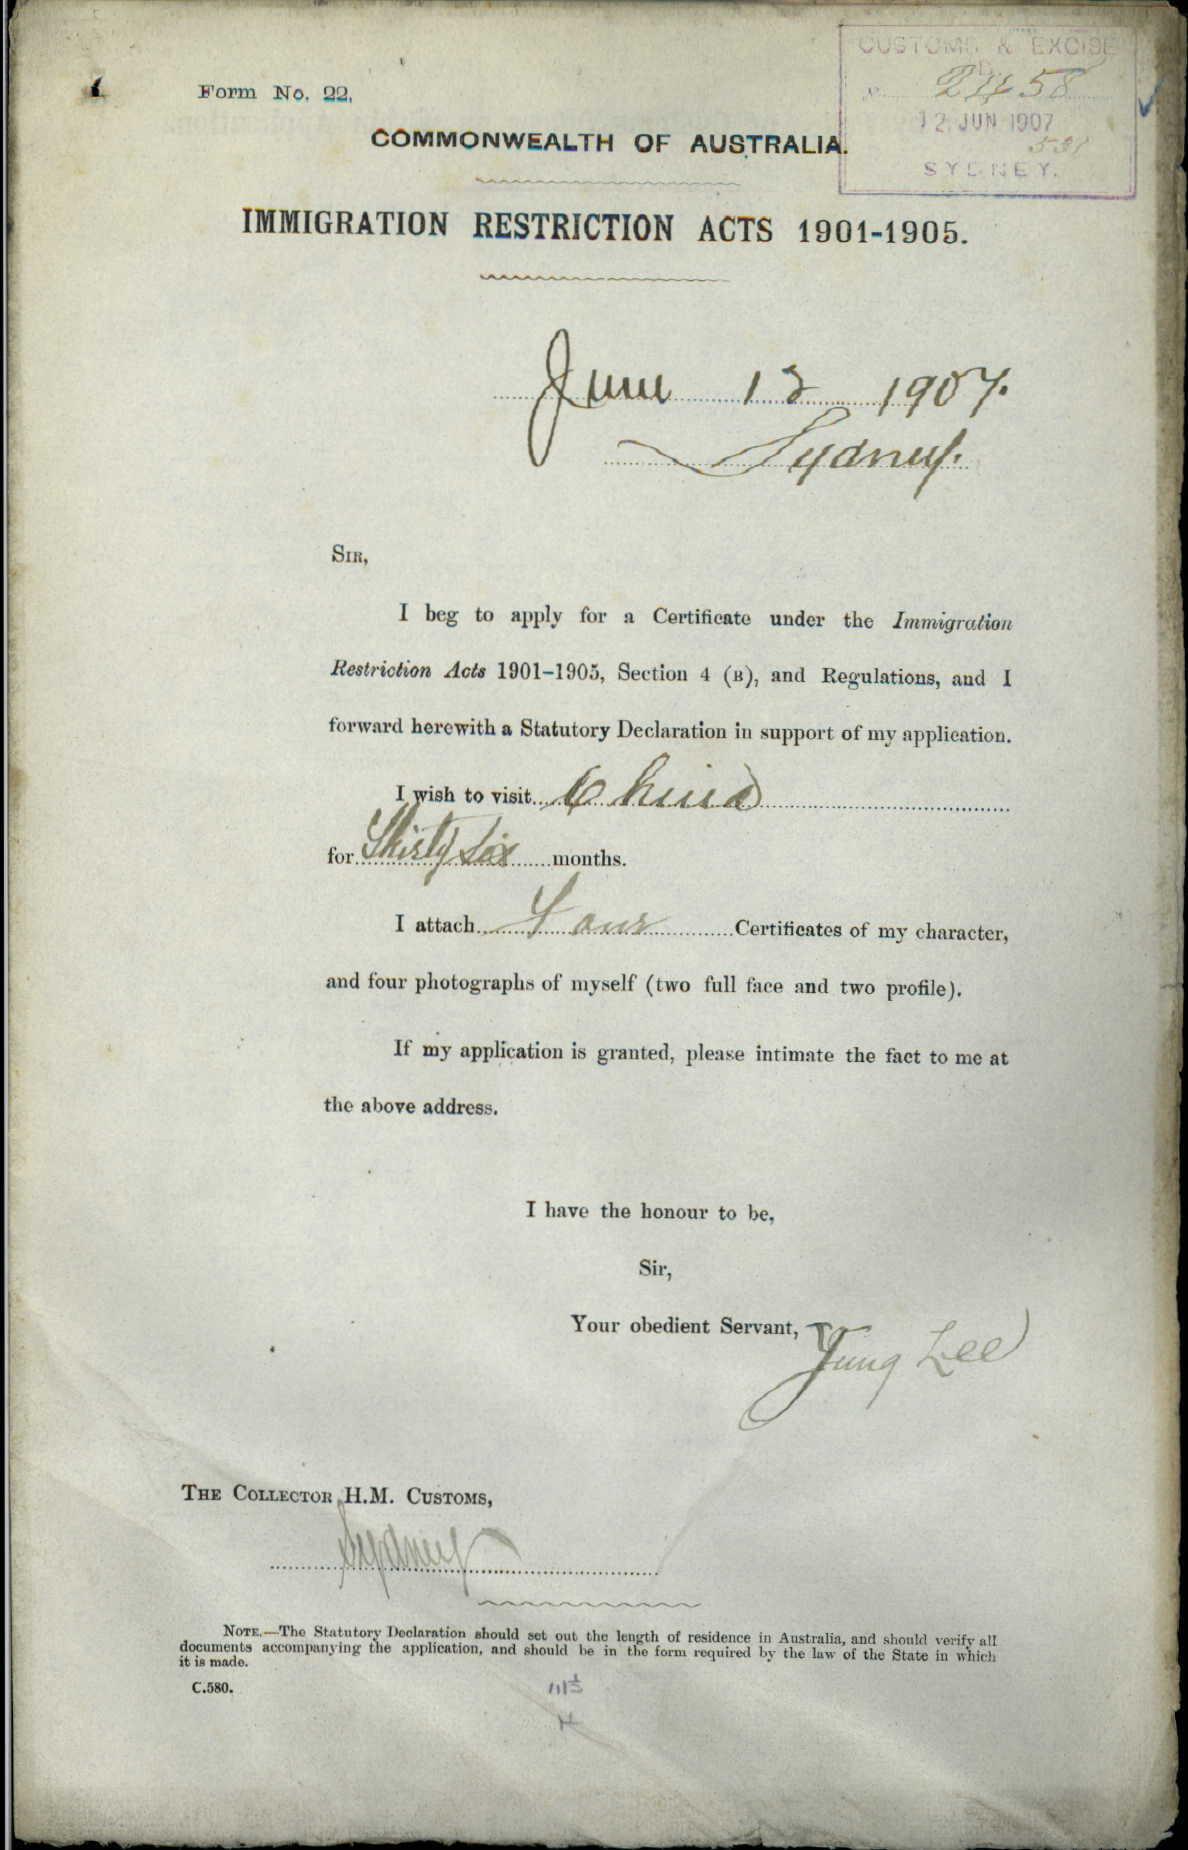 CUSTOMS & EXCISE
12 JUN 1907
SYDNEY.
Form No. 22.
COMMONWEALTH OF AUSTRALIA.
IMMIGRATION RESTRICTION ACTS 1901-1905.
June 12 1907.
Sydney.
SIR,
I beg to apply for a Certificate under the Immigration
Restriction Acts 1901–1905, Section 4 (B), and Regulations, and I
forward herewith a Statutory Declaration in support of my application.
I wish to visit China
for Thirty Six months.
I attach Four Certificates of my character,
and four photographs of myself (two full face and two profile).
If my application is granted, please intimate the fact to me at
the above address.
I have the honour to be,
Sir,
Your obedient Servant,
Yung Lee
THE COLLECTOR H.M. CUSTOMS,
Sydney
NOTE.—The Statutory Declaration should set out the length of residence in Australia, and should verify all
documents accompanying the application, and should be in the form required by the law of the State in which
it is made.
C.580.